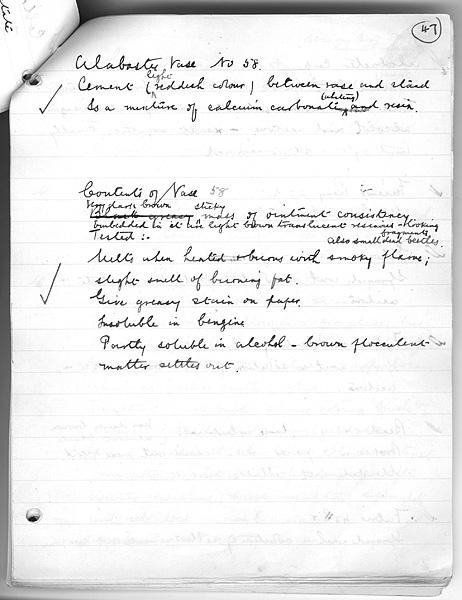 47
Alabaster Vase No 58.
Cement (light reddish colour) between vase and stand
Is a mixture of calcium carbonate (whiting) and resin.
Contents of Vase 58 :-
Very dark brown sticky
Black greasy mass of ointment consistency.
Embedded in it are light brown translucent resinous-looking fragments,
also small dead beetles.
Tested :-
Melts when heated & burns with smoky flame;
slight smell of burning fat.
Give greasy stain on paper.
Insoluble in benzine
Partly soluble in alcohol – brown flocculent
matter settles out.